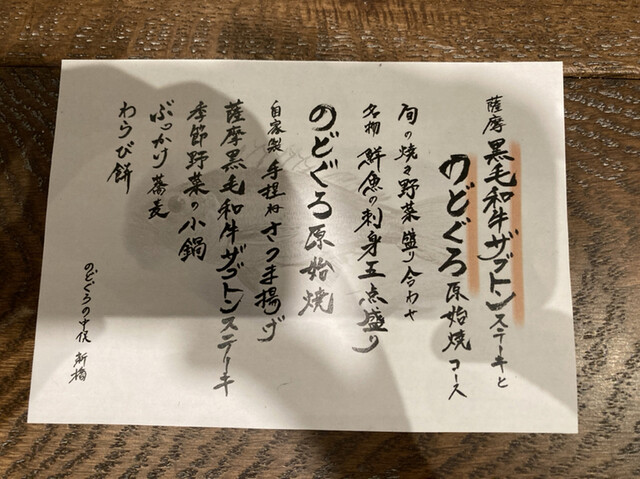 薩摩黒毛和牛ザブトンステーキと
のどぐろ原始焼コース
旬の焼き野菜盛り合わせ
名物 鮮魚の刺身五点盛り
のどぐろ原始焼
自家製 手捏ねさつま揚げ
薩摩黒毛和牛ザブトンステーキ
季節野菜の小鍋
ぶっかけ蕎麦
わらび餅
のどぐろの中俣 新橋